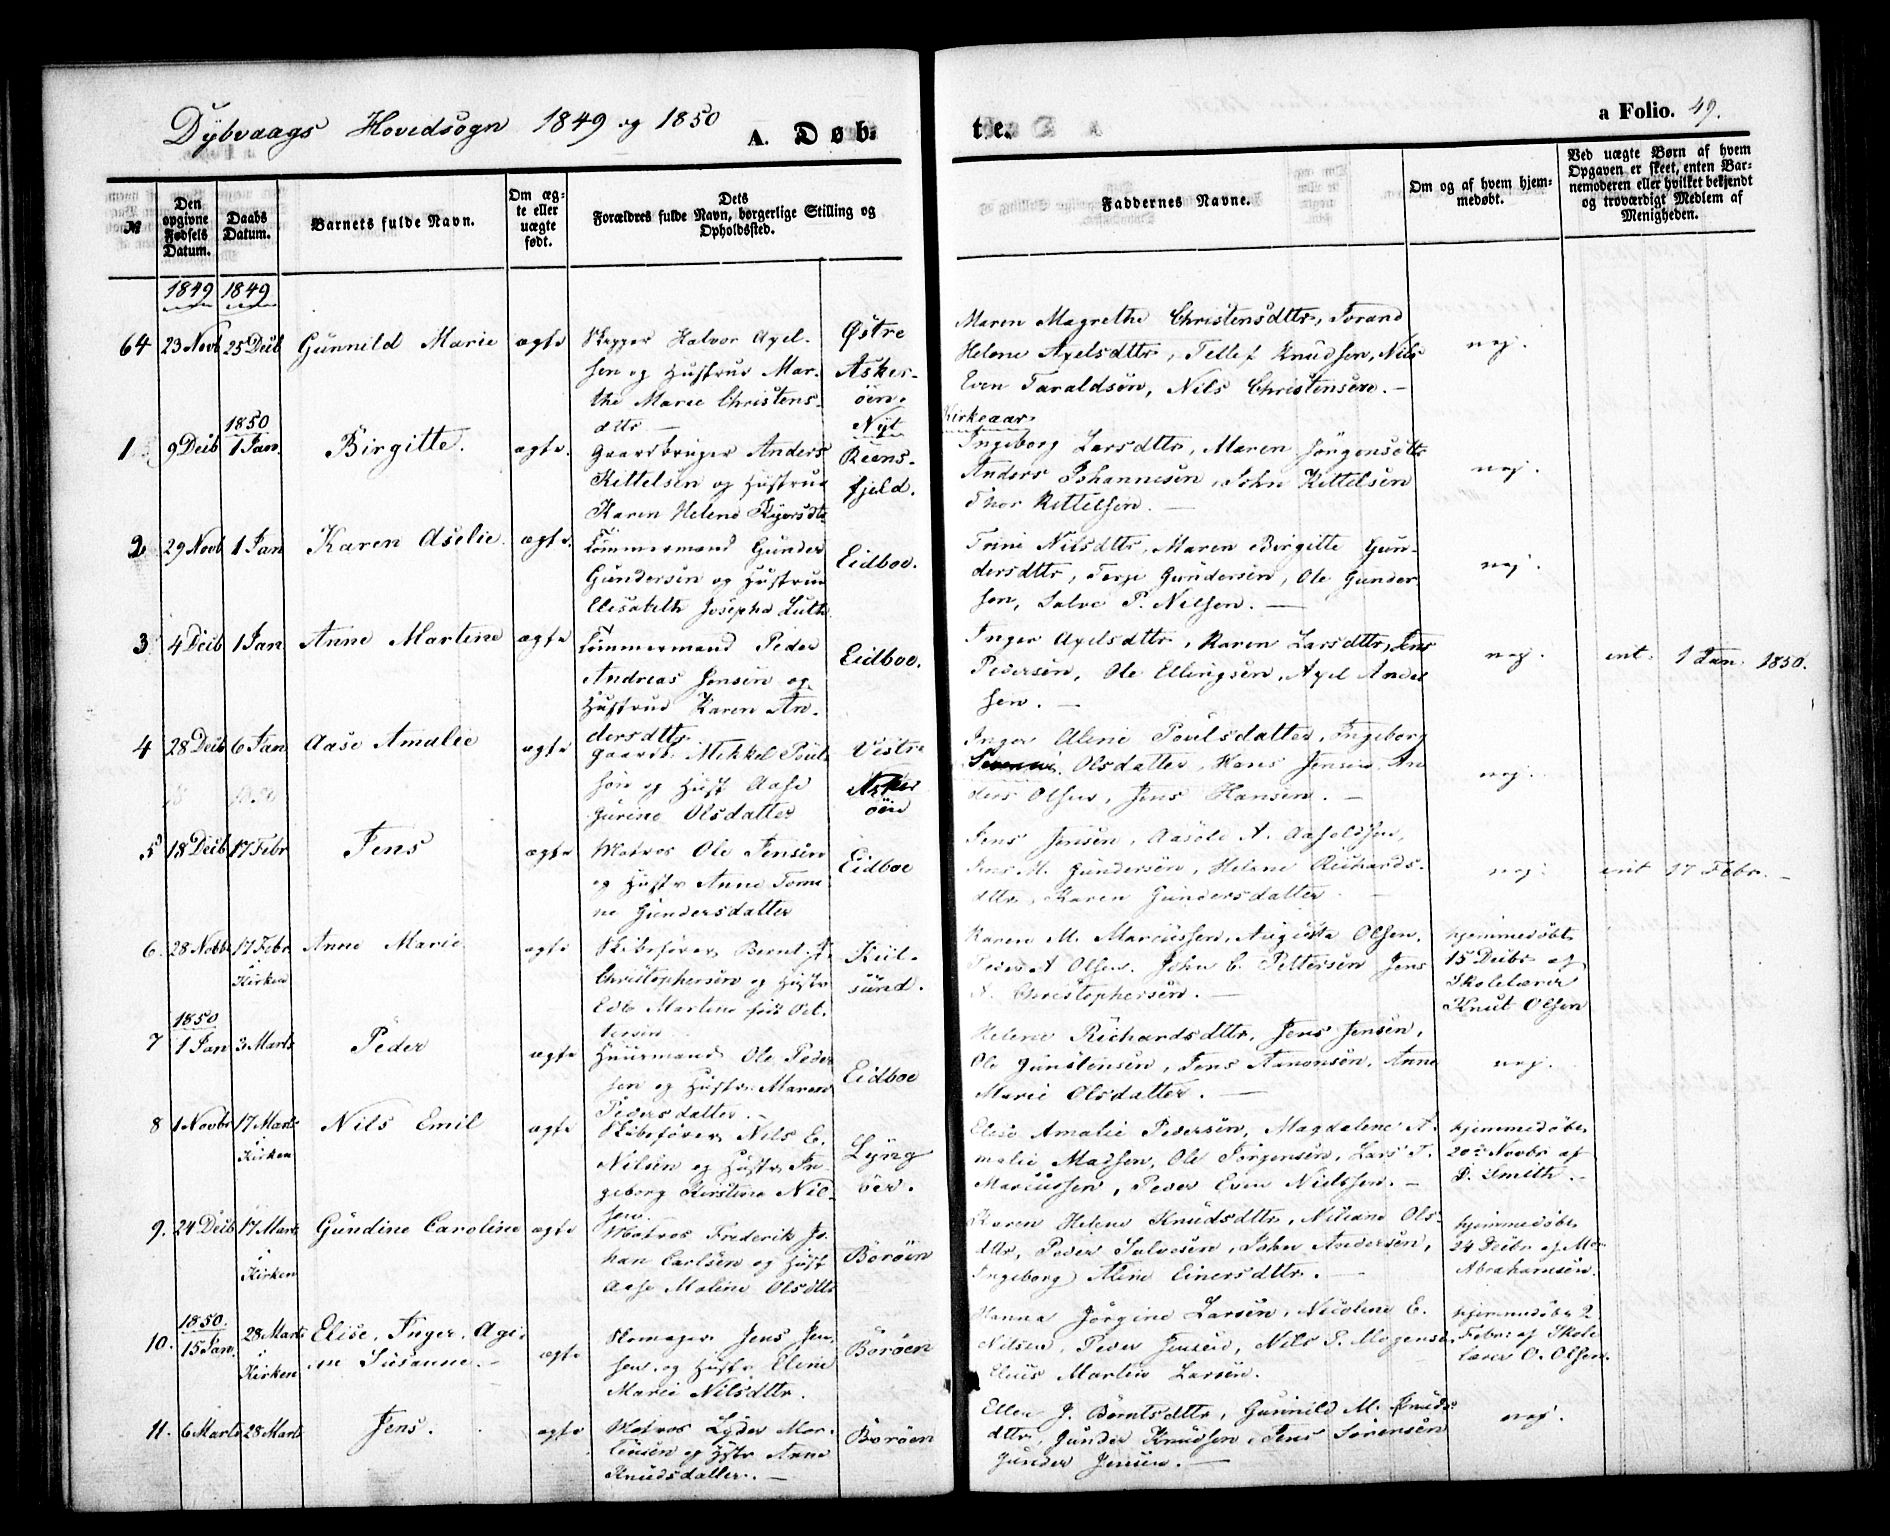 Dybvaags Hovedsogn 1849 og 1850
A. Døb-
te.
a Folio. 49.
№
Den opgivne Fødsels Datum.
Daabs Datum.
Barnets fulde Navn.
Om ægte eller uægte født.
Dets Forældres fulde Navn, borgerlige Stilling og Opholdssted.
Faddernes Navne.
Om og af hvem hjemmedøbt.
Ved uægte Børn af hvem Opgaven er skeet, enten Barnemoderen eller hvilket bekjendt og troværdigt Medlem af Menigheden.
1849 1849
64 23 Novb 25 Decb Gunnild Marie ægte
Skipper Halvor Axel-
sen og Hustrue Mar-
the Marie Christens-
dttr.
Østre
Asker-
öen.
Maren Magrethe Christensdttr,
Helene Axelsdttr, Tellef Knudsen, Nils
Even Taraldsön, Nils Christensen. —
nej.
Nyt Kirkeaar.
1850
1 9 Decb 1 Jan. Birgitte. ægte.
Gaardbruger Anders
Kittelsen og Hustrue
Karen Helene
Reens-
fjeld.
Ingeborg Larsdttr, Maren Jörgensdttr
Anders Johannesön, John Kittelsen
Thor Kittelsen. —
nej.
2 29 Novb 1 Jan Karen Aselie. ægte.
Tömmermand Gunder
Gundersen og Hustrue
Elisabeth Josepha
Eidboe.
Trine Nilsdttr, Maren Birgitte Gun-
dersdttr, Terje Gundersen, Ole Gunder
sen, Salve P. Nelsen. —
nej.
3 4 Decb 1 Jan Anne Martine ægte
Tömmermand Peder
Andreas Jensen og
Hustrue Karen An-
dersdttr
Eidboe.
Inger Axelsdttr, Karen Larsdttr, Jens
Pedersen, Ole Ellingsen, Axel Ander
sen. —
nej. int. 1 Jan. 1850.
4 28 Decb 6 Jan Aase Amalie ægte
Gaardb. Mikkel Poul
sön og Hust Aase
Gurine Olsdatter
Vestre
Asker
öen
Inger Alene Poulsdatter, Ingeborg
Olsdatter, Hans Jensen, An
ders Olsen, Jens Hansen. —
nej.
5 18 Decb 17 Febr Jens ægte
Matros Ole Jensen
og Hustr Anne Tomi
ne Gundersdatter
Eidboe
Jens Jensen, Aasold A. Aasoldsen,
Jens M. Gundersen, Helene Richards-
dttr, Karen Gundersdatter
nej. int 17 Febr. —
6. 28 Novbr 17 Febr i Kirken Anne Marie ægte
Skibsförer Bernt
Christophersen og Hustr
Martine
Kiil-
sund.
Karen M. Marcussen, Augusta Olsen,
Peder A Olsen. John C. Pettersen Jens
N. Christophersen. —
hjemmedöbt
15 Decbr af
Skolelærer
Knut Olsen
1850
7 1 Jan 3 Marts Peder ægte
Huusmand Ole Peder
sen og Hustr. Maren
Pedersdatter. —
Eidboe
Helene Richardsdttr, Jens Jensen,
Ole Gunstensen, Jens Aanonsen, Anne
Marie Olsdatter. —
nej.
8 1 Novbr 17 Marts i Kirken Nils Emil ægte
Skibsförer Nils E.
Nilsen og Hustr In-
geborg Kirstine Nil-
sen.
Lyng
öer.
Elise Amalie Pedersen, Magdalene A-
malie Madsen, Ole Jörgensen, Lars T.
Marcussen, Peder Even Nielssen. —
hjemmedöbt
20de Novbr af
Smith. —
9. 24 Decb 17 Marts i Kirken Gundine Caroline ægte
Matros Frederik Jo
han Carlsen og Hust
Aase Maline Olsdttr
Boröen
Karen Helene Knudsdttr, Niliane Ols-
dttr, Peder Salvesen, John Andersen,
Ingeborg Aline Einersdttr. —
hjemmedöbt
24 Decbr af
Abrahamsen.
1850.
10. 15 Jan. 28 Marts i Kirken Elise, Inger, 
Susanne. — ægte
Skomager Jens Jen
sen og Hustr Eline
Marie Nilsdttr.
Boröen
Hanna Jörgine Larsen, Nicoline E.
Nilsen, Peder Jensen, Nils P. Mogensen,
Martin Larsen.
hjemmedöbt 2
Febr: af Skole
lærer O. Olsen.
11. 6 Marts 28 Marts Jens. ægte
Matros Lyder Mor-
tensen og Hstr Anne
Knudsdatter. —
Boröen
Ellen J. Berntsdttr, Gunnild M. Knuds
dttr, Gunder Knudsen, Jens Sörensen
Gunder Jensen. —
nej.